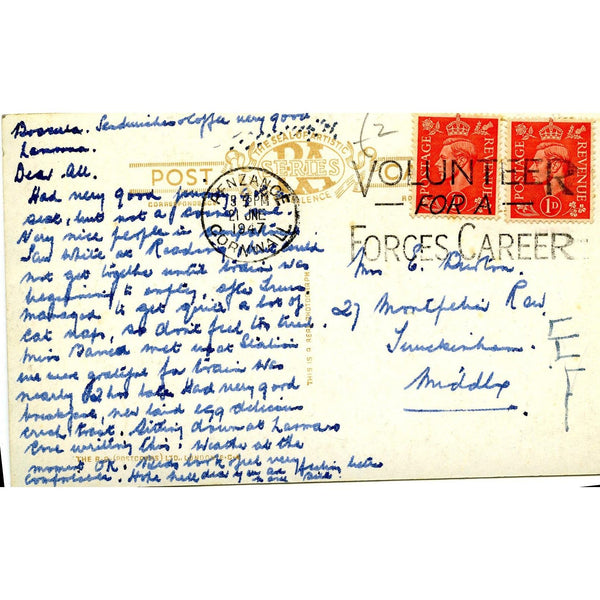 Sandwiches & Coffee very good
Lamorna.
Dear All.
Had very good journey
seat, but not a corner one
Very nice people in
Saw White at Reading could
not get together until train was
beginning to empty, after Truro
managed to get quite a lot of
cat naps, so don't feel too tired.
Miss Barred met us at Station
we were grateful for train was
nearly 1/2 hr late. Had very good
breakfast, new laid egg delicious
crisp toast. Sitting down at Lamorna
Cove writing this, weather at the
moment OK. Beds look & feel very
comfortable. Hope
£2
POST CARD
THE SEAL OF ARTISTIC EXCELLENCE
SERIES
CORRESPONDENCE
PENZANCE
CORNWALL
21 JNE
1947
VOLUNTEER
FOR A
FORCES CAREER
POSTAGE REVENUE
1D
POSTAGE REVENUE
1D
THIS IS A REAL PHOTOGRAPH
Mrs E.
27 Montpelier Row
Twickenham
Middlx